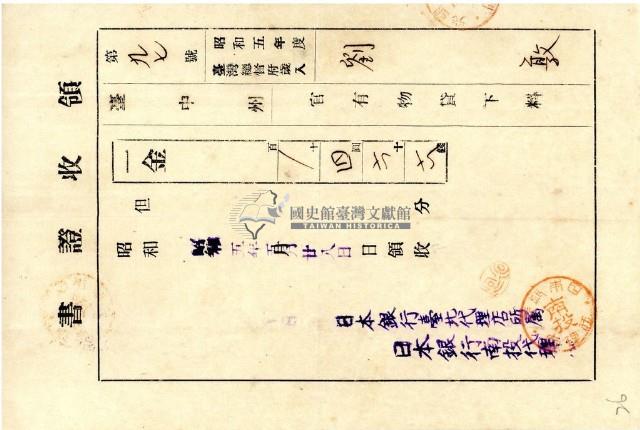 領收證書
第九七號
昭和五年度
臺灣總督府歲入
劉 敦
臺中州
官有物貸下料
一金
百 十 圓 十 錢
四 六 六
但 分
昭和 五年五月廿八日 日領收
國史館臺灣文獻館
TAIWAN HISTORICA
日本銀行臺北代理店所属
日本銀行南投代理
26